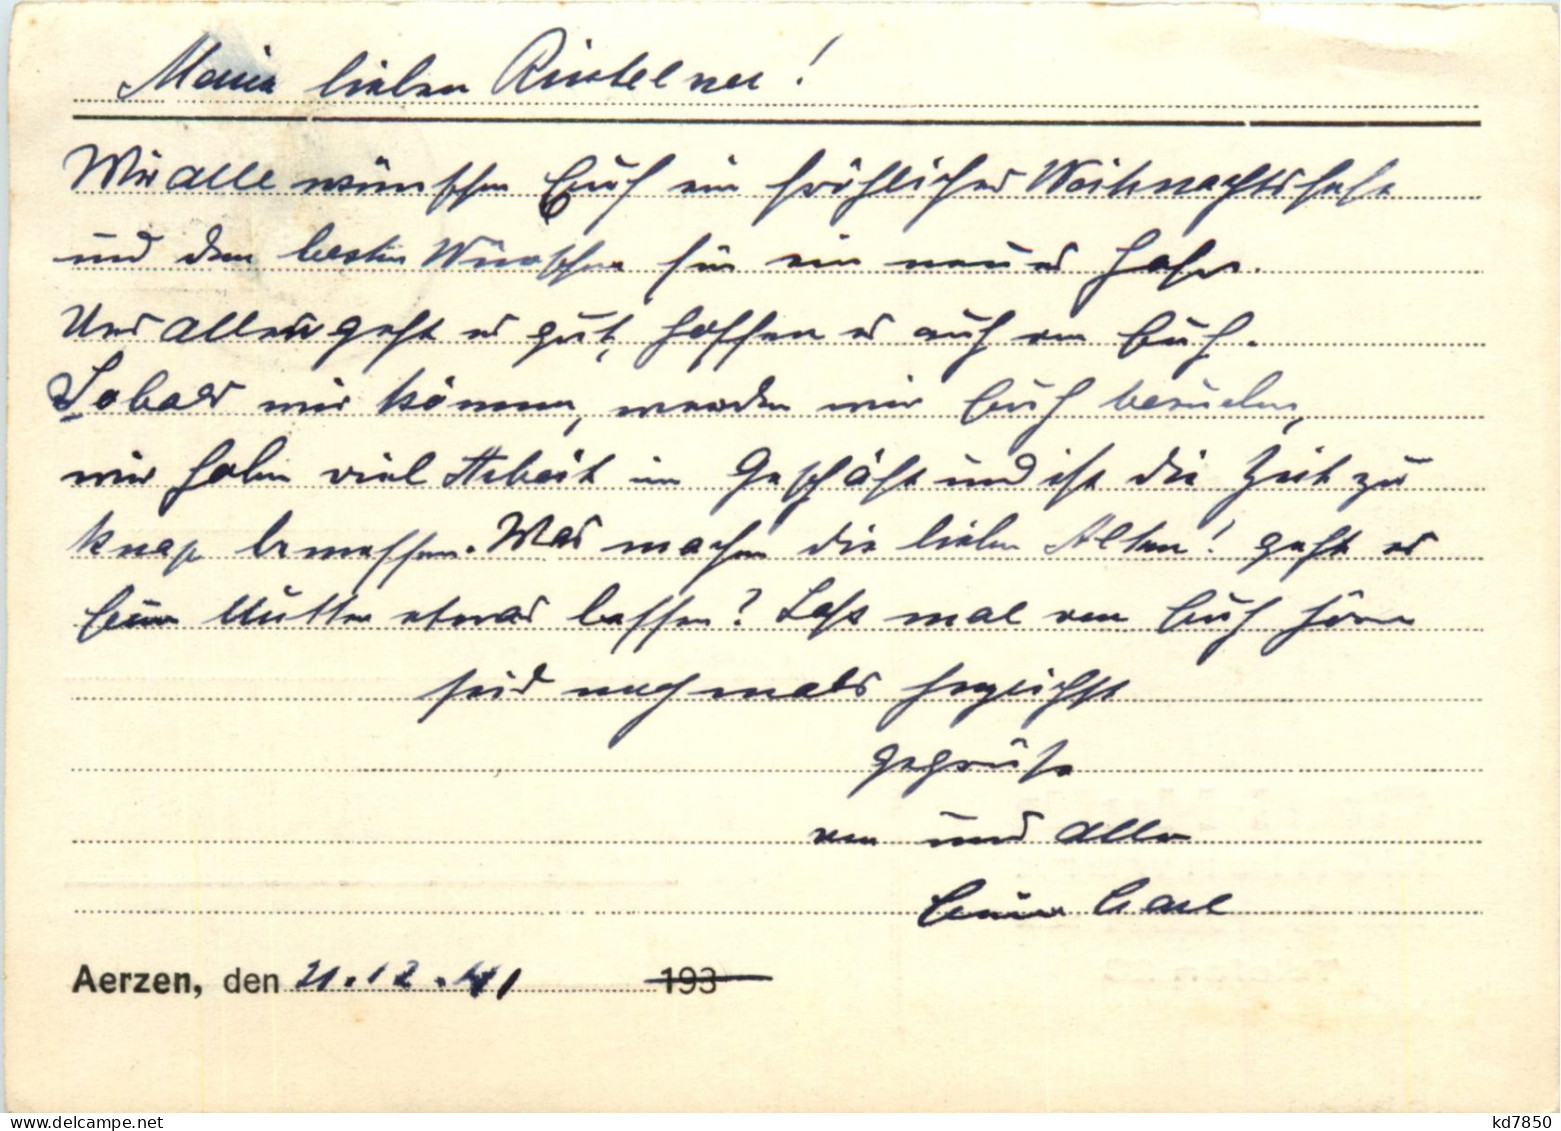 Meine lieben Rintelner!
Wir alle wünschen Euch ein fröhliches Weihnachtsfest
und den besten Wünschen für ein neues Jahr.
Uns allen geht es gut, hoffen es auch von Euch.
Sobald wir können, werden wir Euch besuchen,
wir haben viel Arbeit im Geschäft und ist die Zeit zu
knap bemessen. Was machen die lieben Alten! geht es
Eure Mutter etwas besser? Laßt mal von Euch hören
seid nochmals herzlichst
gegrüßt
von uns allen
Euer Carl
Aerzen, den 21.12.41 193
delcampe.net
kd7850